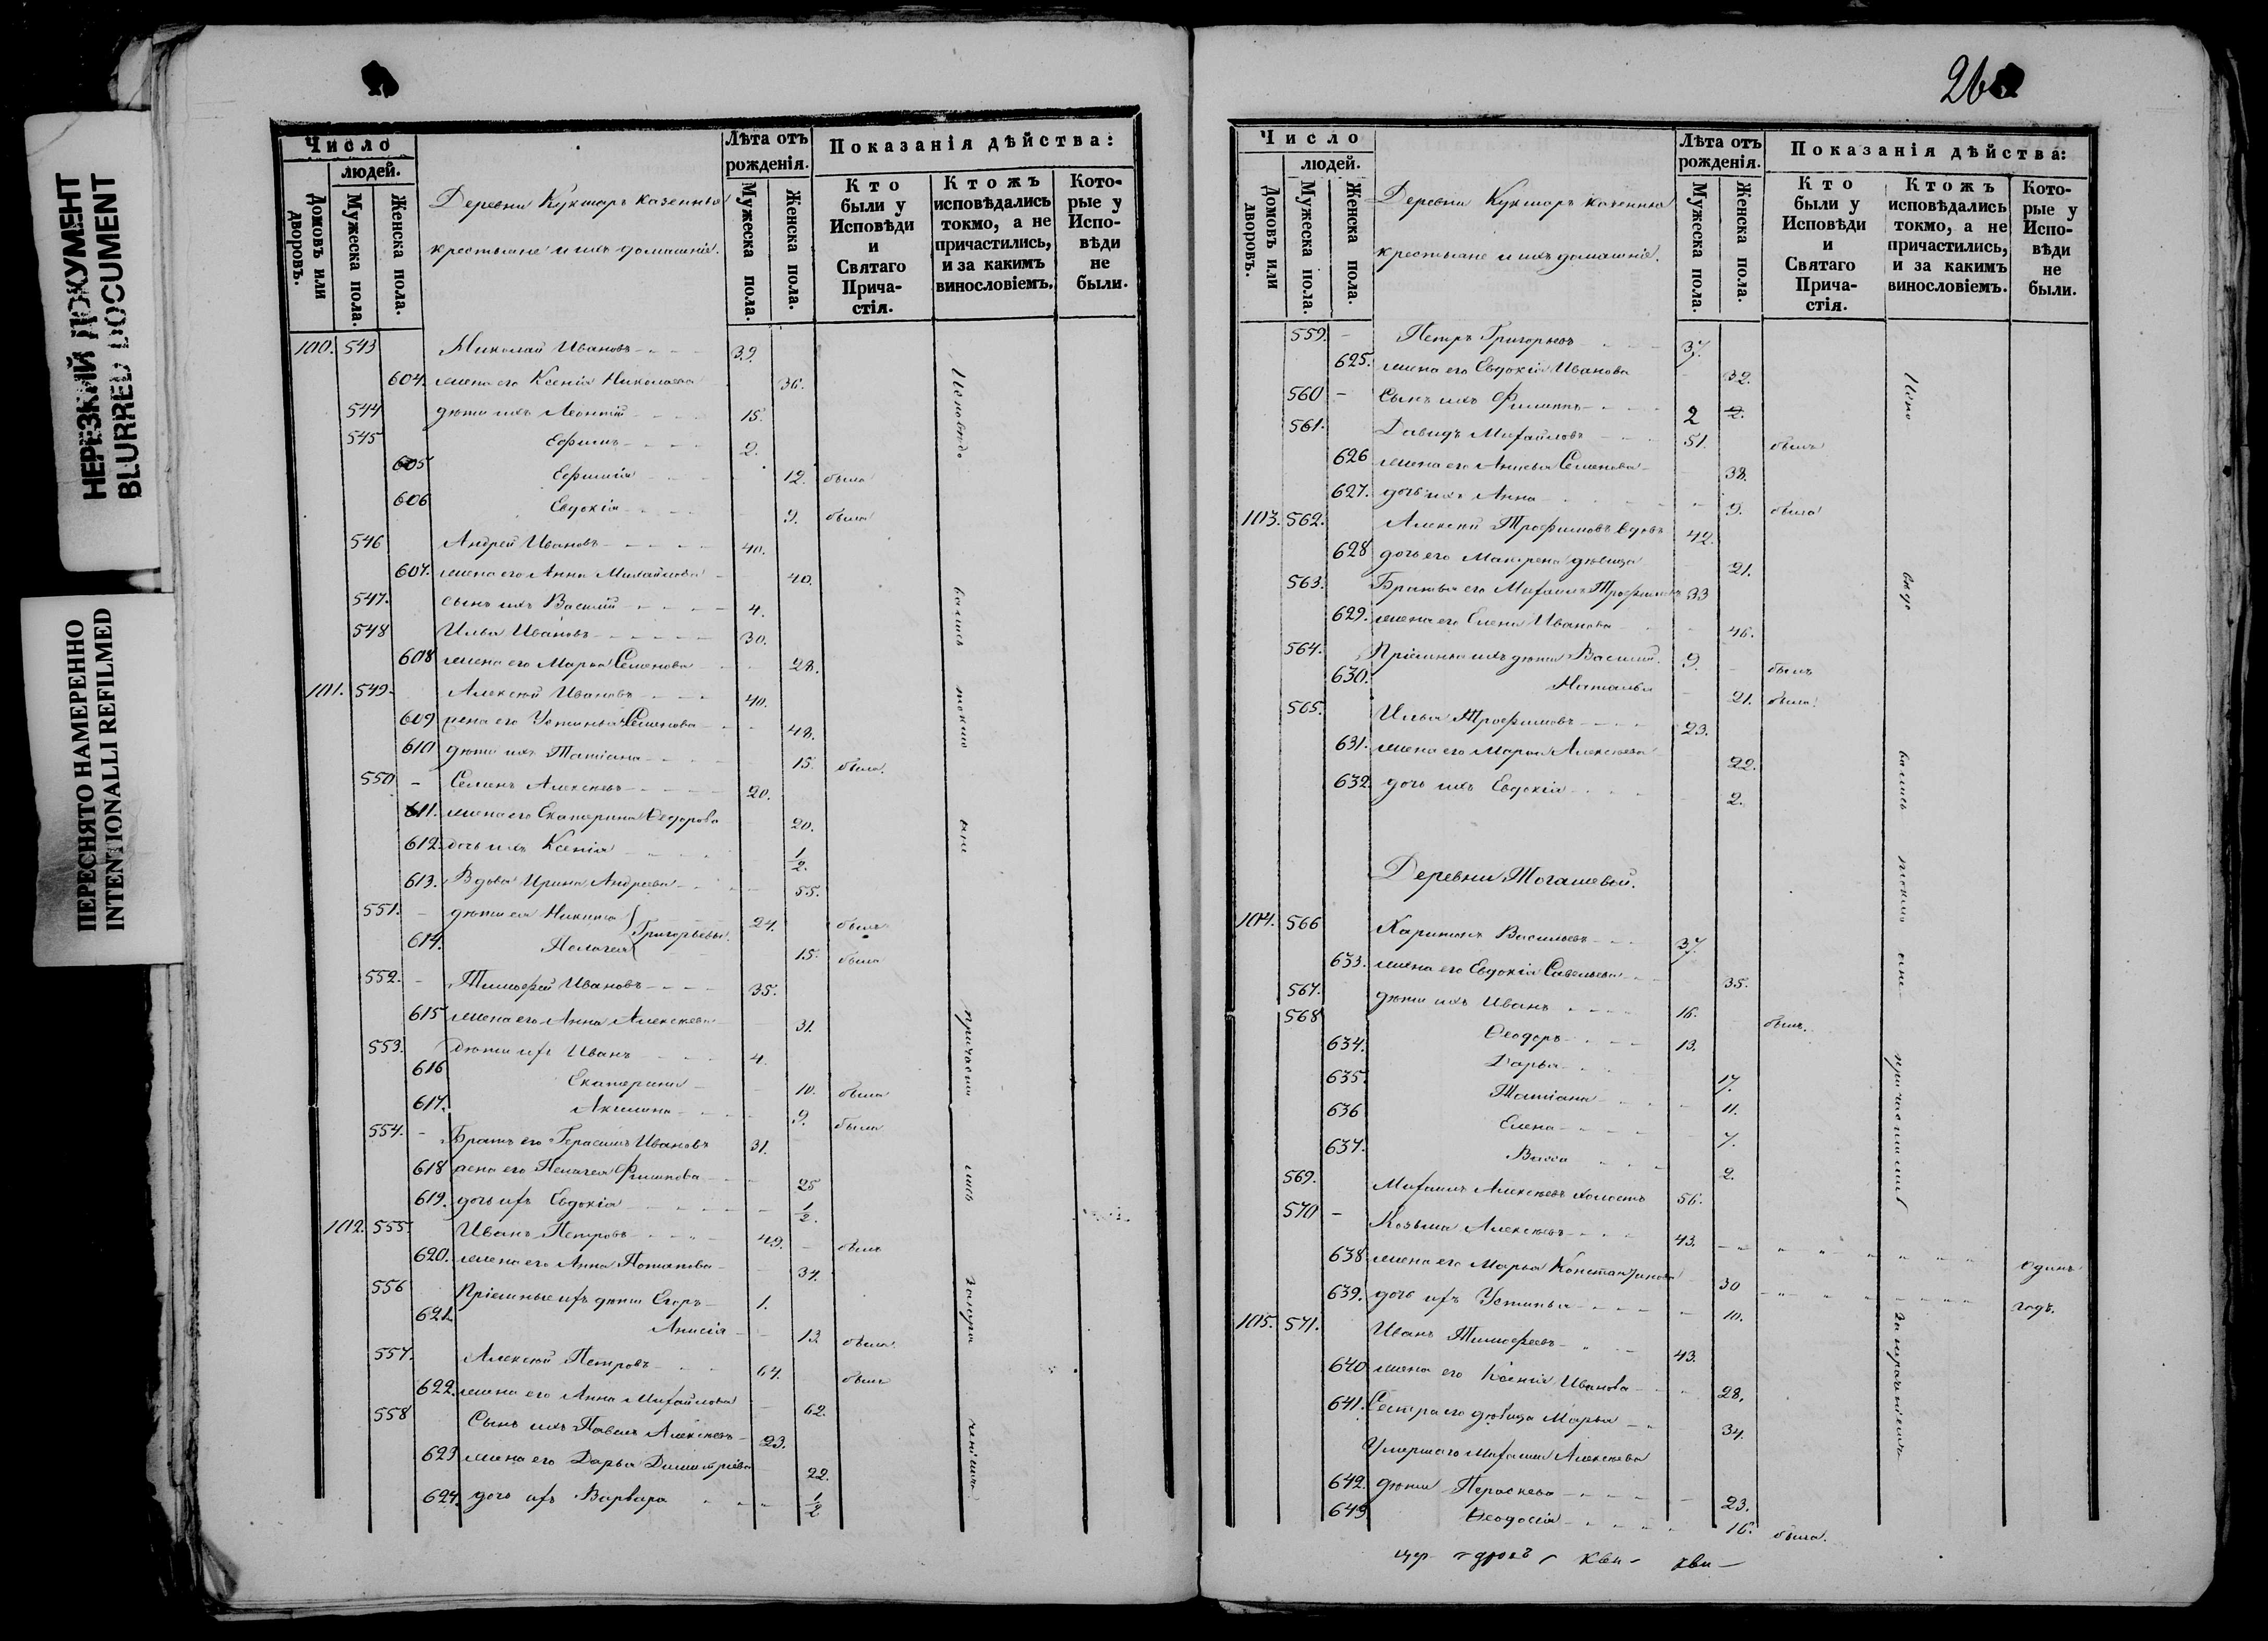 НЕРЕЗКИЙ ДОКУМЕНТ
BLURRED DOCUMENT
ПЕРЕСНЯТО НАМЕРЕННО
INTENTIONALLI REFILMED
Число
людей.
Домовъ или дворовъ.
Мужеска пола.
Женска пола.
Деревни Кукшаръ казенные
крестьяне и ихъ домашніе.
Лѣта отъ рожденія.
Мужеска пола.
Женска пола.
Показанія дѣйства:
Кто были у Исповѣди и Святаго Прича-стія.
Ктожъ исповѣдались токмо, а не причастились, и за какимъ винословіемъ.
Кото-рые у Испо-вѣди не были.
100. 543 Николай Ивановъ 39.
604. жена его Ксенія Николаева 36.
544 дѣти ихъ Леонтій 15.
545 Ефимъ 2.
605 Ефимія 12. была
606 Евдокія 9. была
546 Андрей Ивановъ 40.
607. жена его Анна Михайлова 40.
547. сынъ ихъ Василій 4.
548 Илья Ивановъ 30.
608 жена его Марья Семенова 28.
101. 549. Алексѣй Ивановъ 40.
609 жена его Устинья Семенова 48.
610 дѣти ихъ Татіана 15. была.
550 - Семенъ Алексѣевъ 20.
611. жена его Екатерина Ѳедорова 20.
612. дочь ихъ Ксенія 1/2.
613. Вдова Ирина Андреева 55.
551. - дѣти ея Никита } Григорьевы. 24. былъ
614. Пелагея 15. была
552. - Тимофей Ивановъ 35.
615 жена его Анна Алексѣева 31.
553. дѣти ихъ Иванъ 4.
616 Екатерина 10. была
617. Акилина 9. была
554. - Братъ его Герасимъ Ивановъ 31.
618 жена его Пелагея Филипова 25
619. дочь ихъ Евдокія 1/2.
102. 555. Иванъ Петровъ 49. былъ
620. жена его Анна Потапова 34.
556 Пріемные ихъ дѣти Егоръ 1.
621. Анисія 13 была.
557. Алексѣй Петровъ 64. былъ
622. жена его Анна Михайлова 62.
558 Сынъ ихъ Павелъ Алексѣевъ 23.
623 жена его Дарья Димитріева 22.
624. дочь ихъ Варвара 1/2
Исповѣдо вались токмо а не причасти лись
260
Число
людей.
Домовъ или дворовъ.
Мужеска пола.
Женска пола.
Деревни Кукшаръ казенные
крестьяне и ихъ домашніе.
Лѣта отъ рожденія.
Мужеска пола.
Женска пола.
Показанія дѣйства:
Кто были у Исповѣди и Святаго Прича-стія.
Ктожъ исповѣдались токмо, а не причастились, и за какимъ винословіемъ.
Кото-рые у Испо-вѣди не были.
559. - Петръ Григорьевъ 37.
625. жена его Евдокія Иванова 32.
560 - Сынъ ихъ Филиппъ 2
561. Давидъ Михайловъ 51. былъ
626 жена его Анисья Семенова 38.
627. дочь ихъ Анна 9. была
103. 562. Алексѣй Трофимовъ вдовъ 42.
628 дочь его Матрена дѣвица 21.
563. Братья его Михаилъ Трофимовъ 33
629. жена его Елена Иванова 46.
564. Пріемные ихъ дѣти Василій. 9. былъ
630. Наталья 21. была.
565. Илья Трофимовъ 23.
631. жена его Марья Алексѣева 22.
632. дочь ихъ Евдокія 2.
Деревни Тогашевой.
104. 566 Харитонъ Васильевъ 37.
633. жена его Евдокія Савельева 35.
567. дѣти ихъ Иванъ 16. былъ.
568 Ѳеодоръ 13.
634. Дарья 17.
635. Татіана 11.
636 Елена 7.
637. Васса 2.
569. Михаилъ Алексѣевъ холостъ 56.
570 - Козьма Алексѣевъ 43. одинъ
638 жена его Марья Константинова 30 годъ.
639. дочь ихъ Устинья 10.
105. 571. Иванъ Тимофеевъ 43.
640 жена его Ксенія Иванова 28.
641. Сестра его дѣвица Марья 34.
Умершаго Михаила Алексѣева
642. дѣти Параскева 23.
643 Ѳеодосія 16. была.
Испо вѣдо вались токмо а не причастились